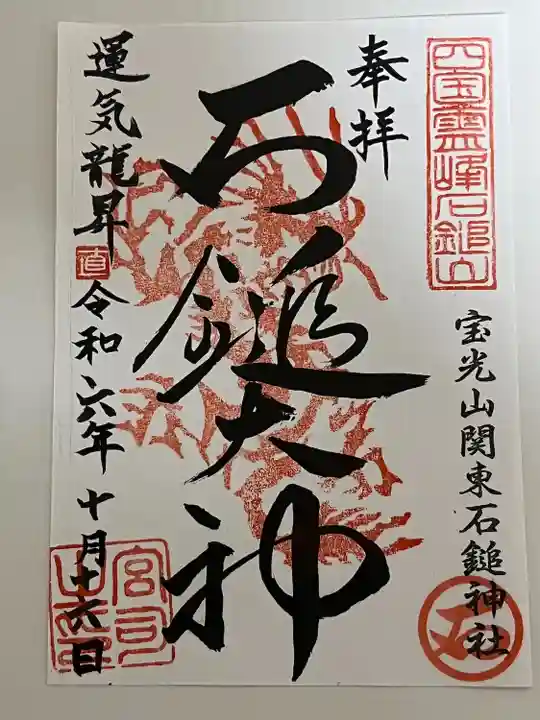 四国霊峰石鎚山
宝光山関東石鎚神社
奉拝
石鎚大神
運気龍昇
直
令和六年十月十六日
宮司